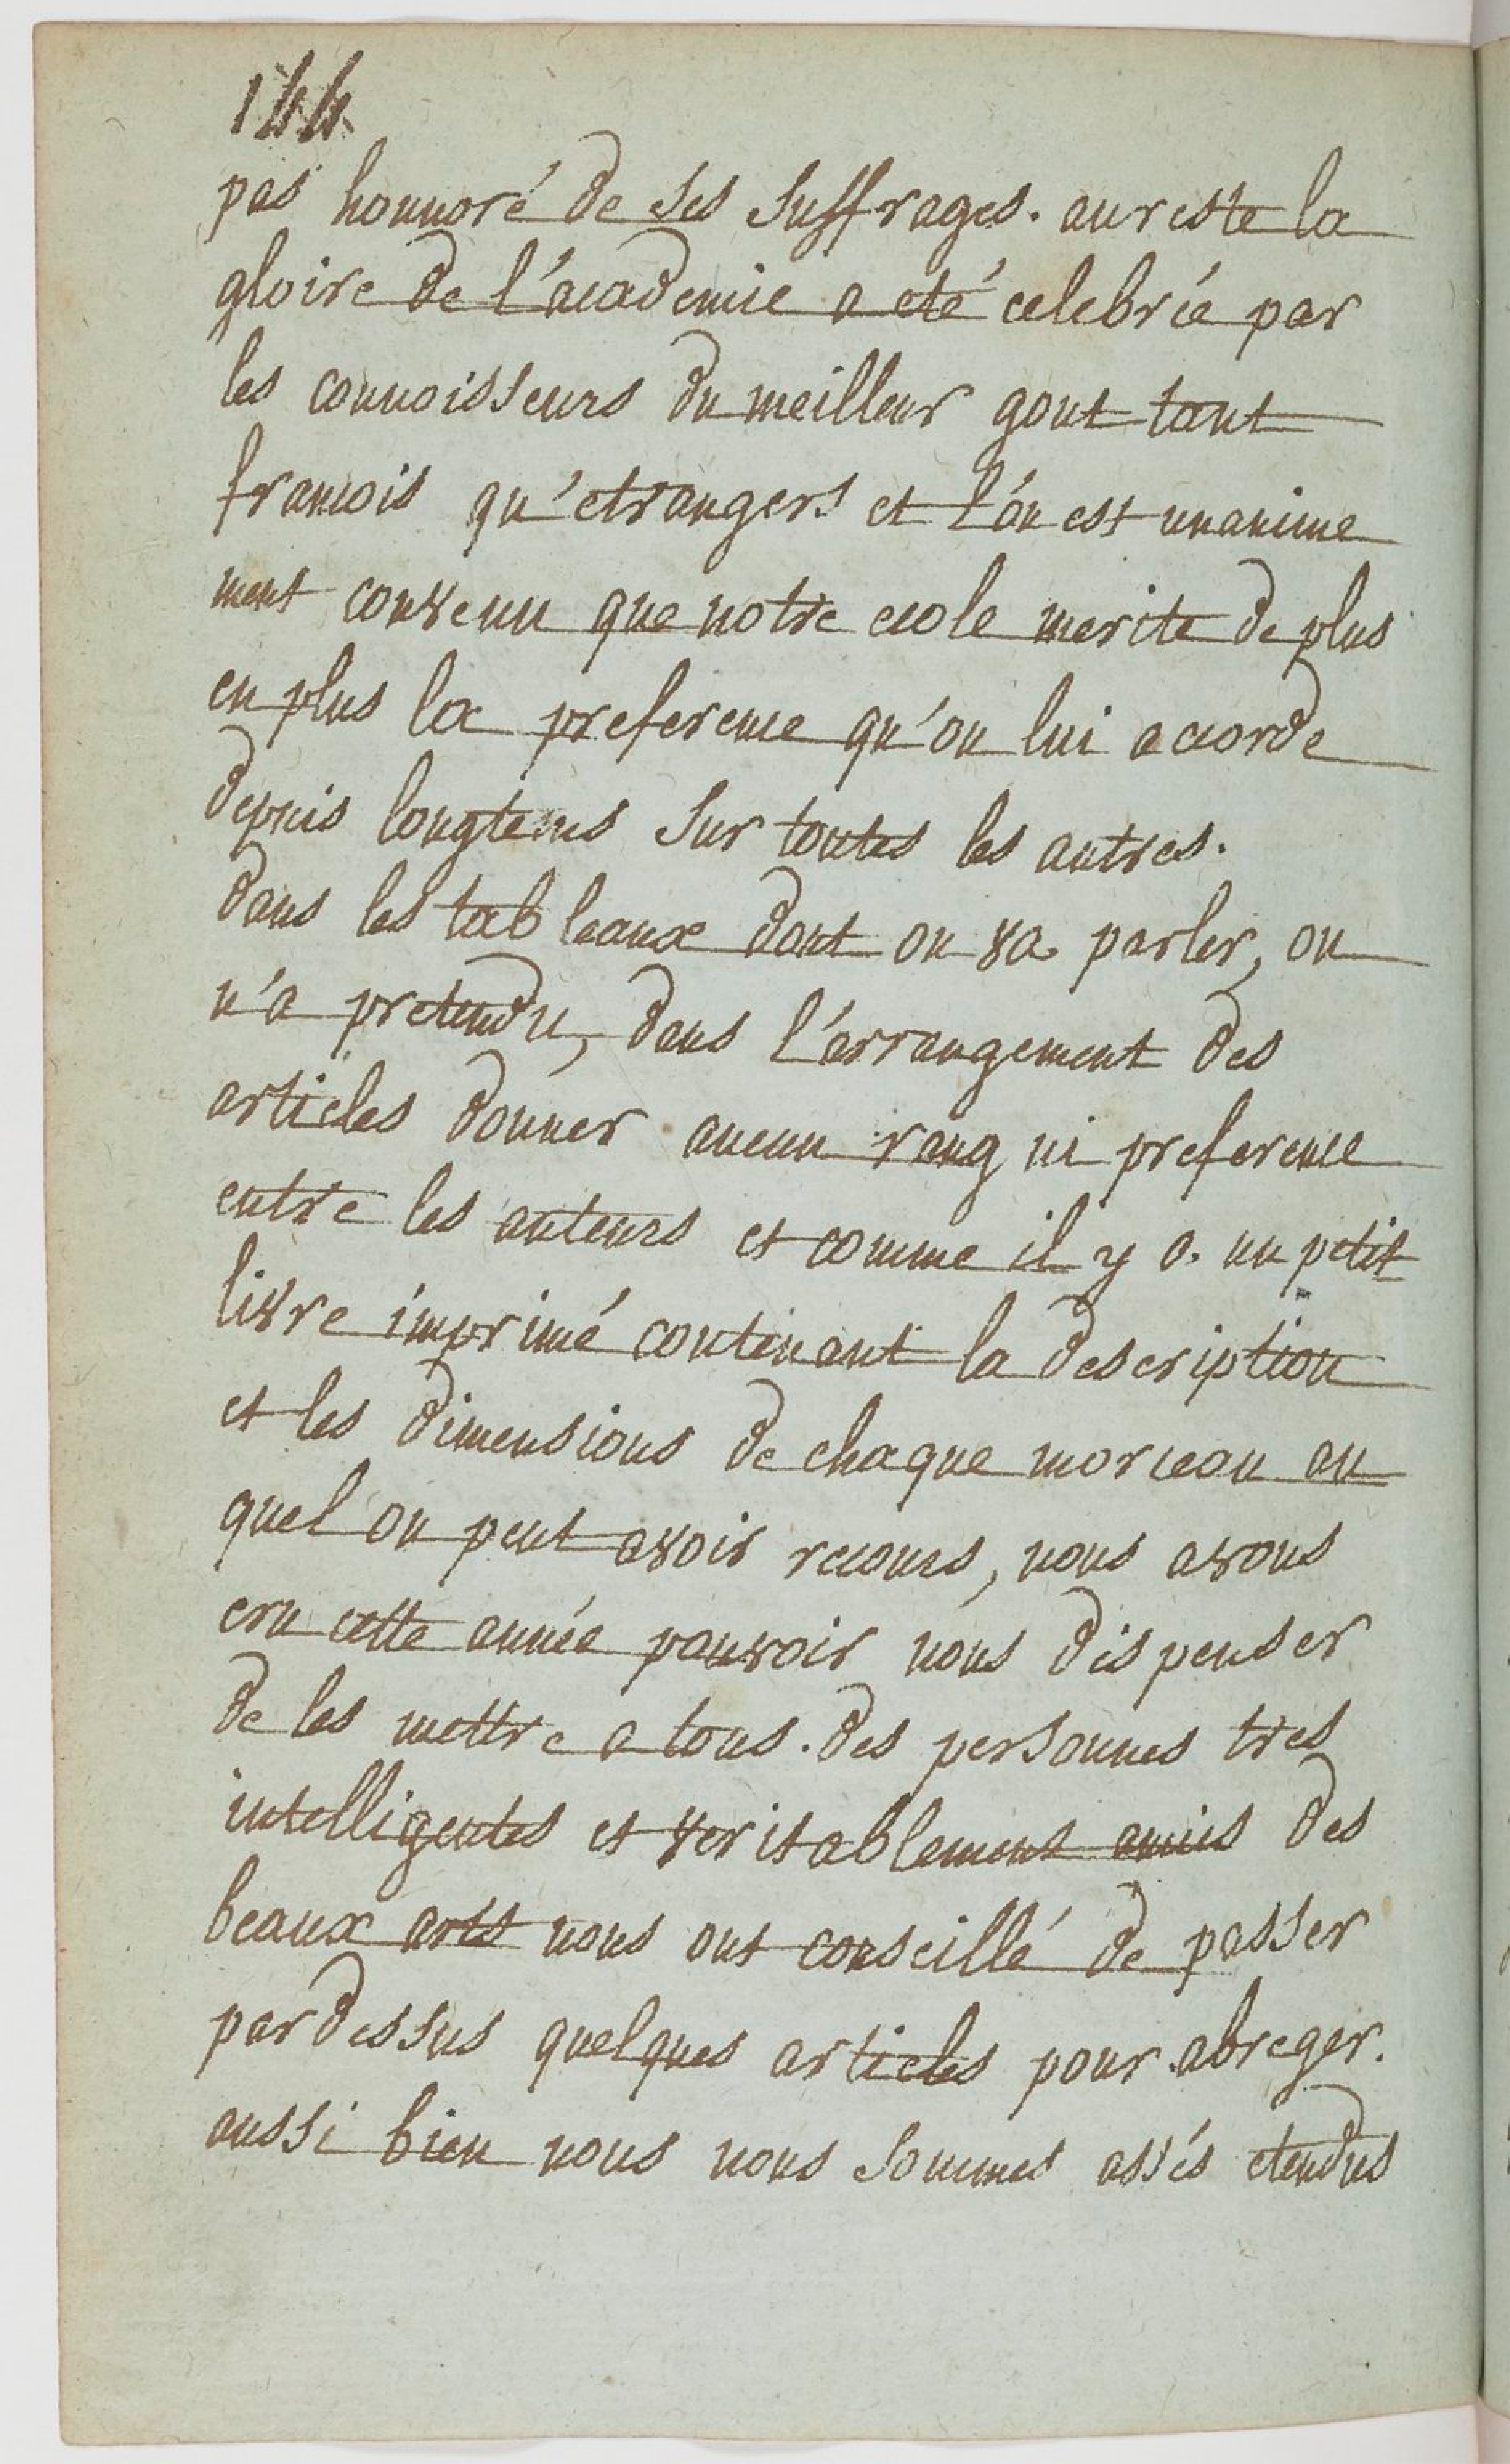 144
pas honnoré de ses suffrages. au reste la
gloire de l'academie a eté celebrée par
les connoisseurs du meilleur gout tant
francois qu'etrangers et l'on est unanime
ment convenu que notre ecole merite de plus
en plus la preference qu'on lui accorde
depuis longtems sur toutes les autres.
dans les tableaux dont on va parler, on
n'a pretendu, dans l'arrangement des
articles donner aucun rang ni preference
entre les auteurs et comme il y a un petit
livre imprimé contenant la description
et les dimensions de chaque morceau au
quel on peut avoir recours, nous avons
cru cette année pouvoir nous dispenser
de les mettre a tous. des personnes tres
intelligentes et veritablement amies des
beaux arts nous ont conseillé de passer
pardessus quelques articles pour abreger.
aussi bien nous nous sommes assés etendus